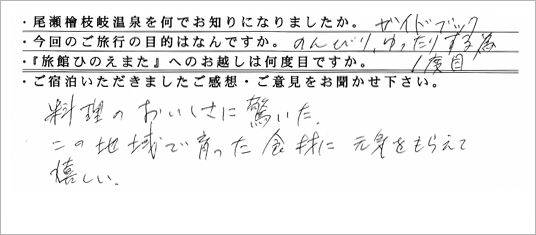 ・尾瀬檜枝岐温泉を何でお知りになりましたか。 ガイドブック
・今回のご旅行の目的はなんですか。 のんびり、ゆったりする為
・『旅館ひのえまた』へのお越しは何度目ですか。 1度目
・ご宿泊いただきましたご感想・ご意見をお聞かせ下さい。
料理のおいしさに驚いた。
この地域で育った食材に元気をもらえて
嬉しい。